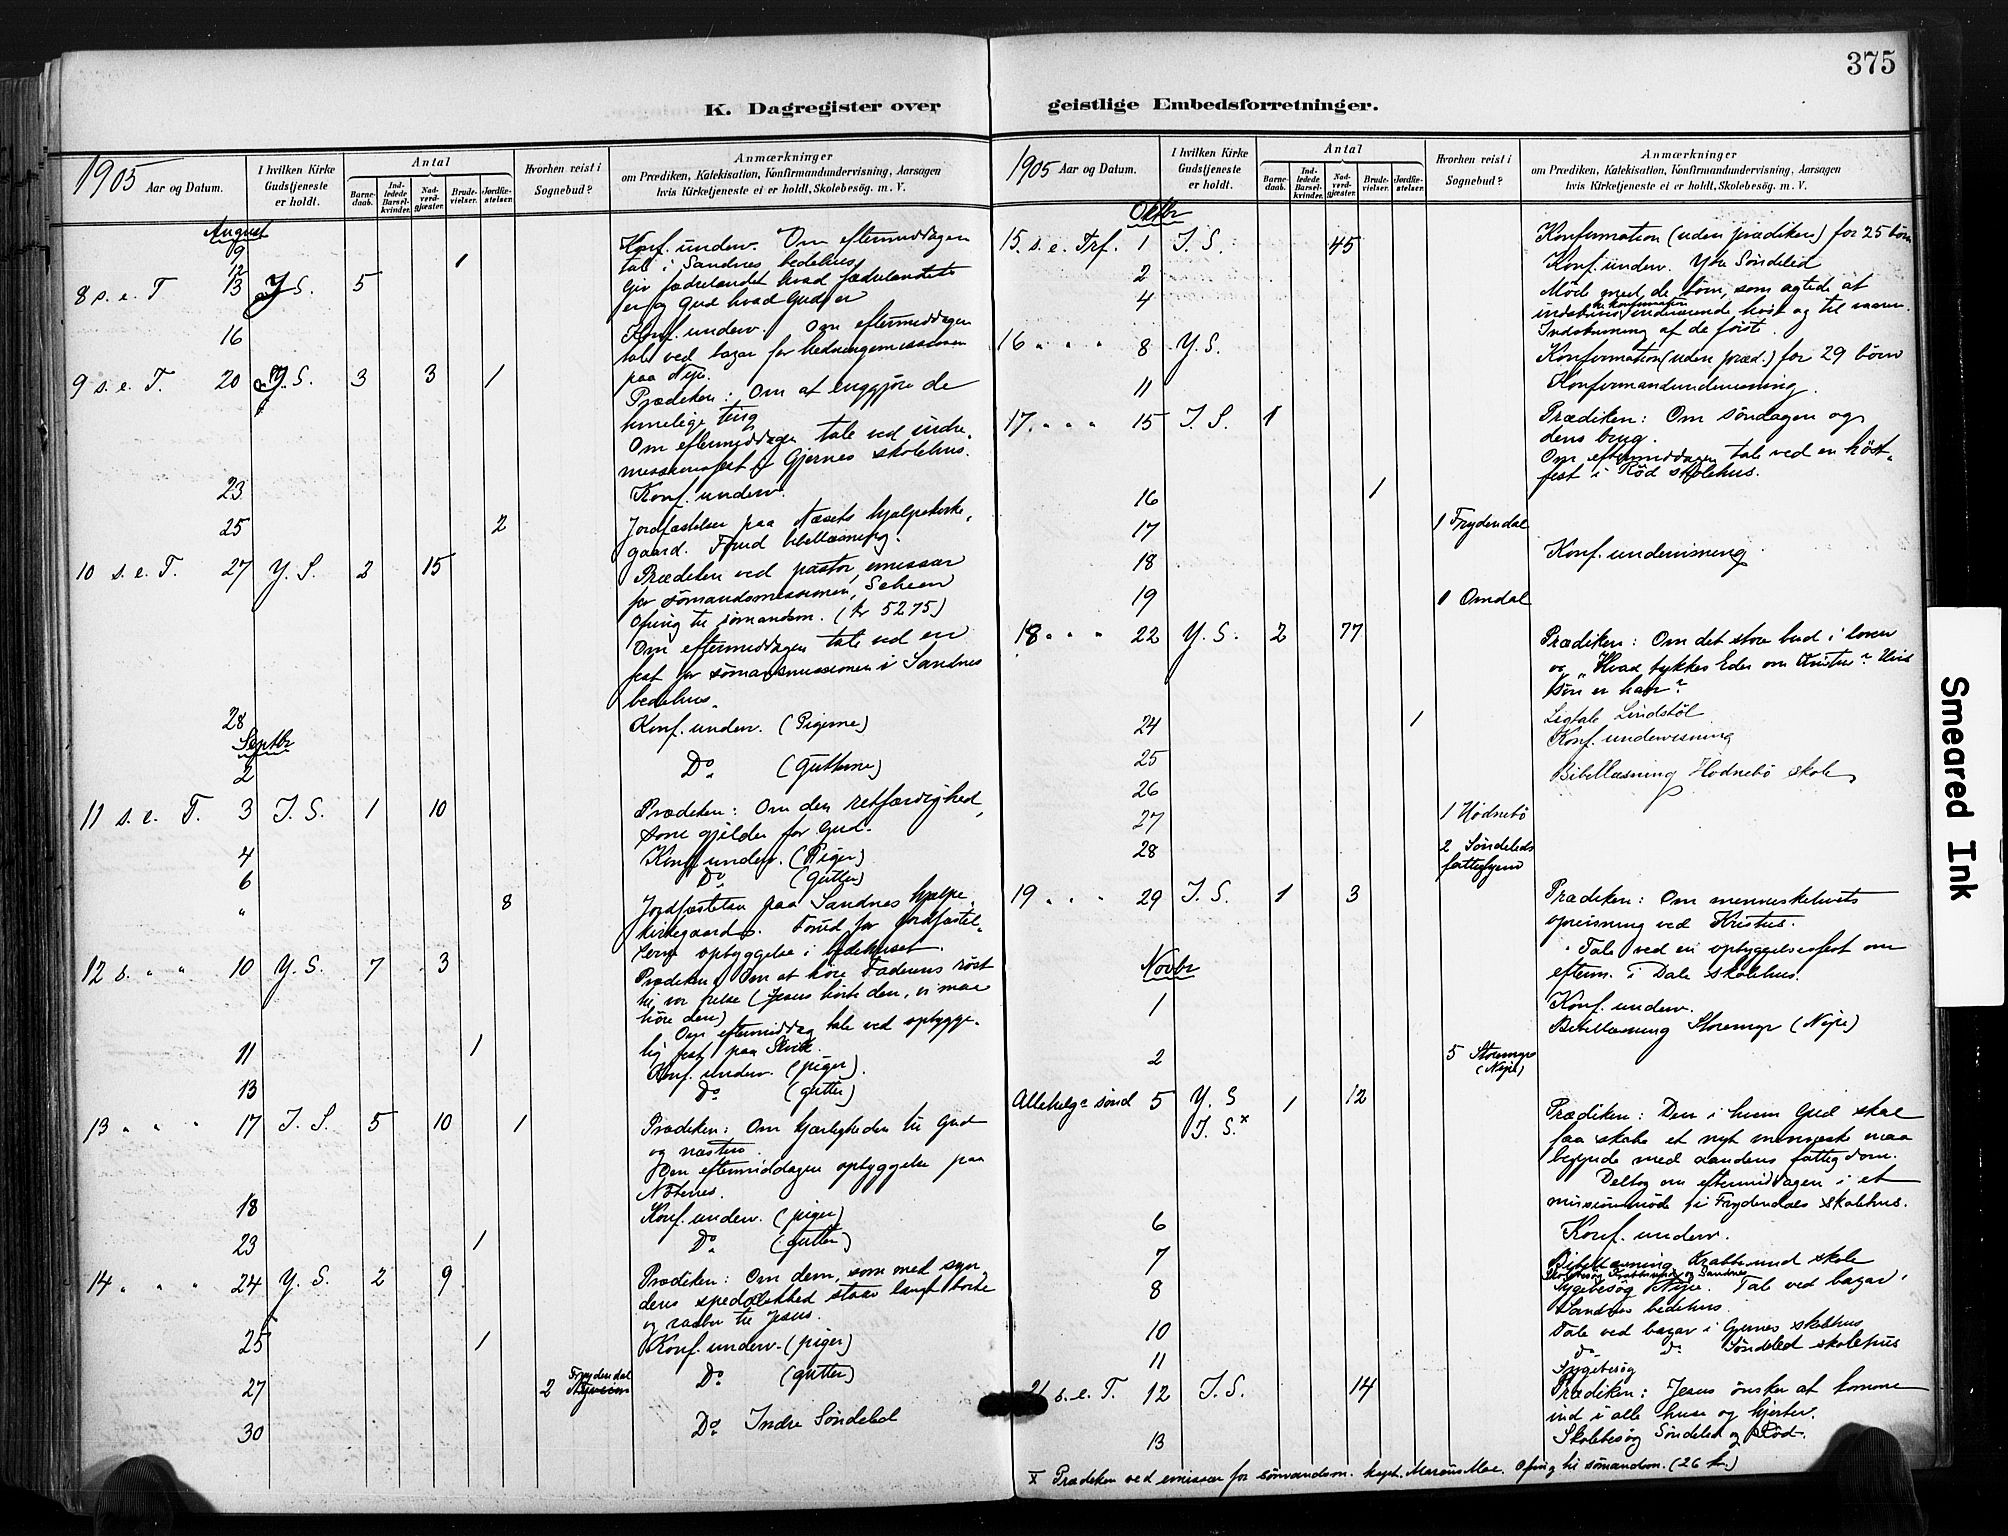 375
K. Dagregister over geistlige Embedsforretninger.
1905 Aar og Datum.
I hvilken Kirke Gudstjeneste er holdt.
Antal
Barnedaab.
Indledede Barselkvinder.
Nadverdgjæster.
Brudevielser.
Jordfæstelser.
Hvorhen reist i Sognebud?
Anmærkninger
om Prædiken, Katekisation, Konfirmandundervisning, Aarsagen
hvis Kirketjeneste ei er holdt, Skolebesøg. m. V.
August
9 Konf. underv. Om eftermiddagen
12 1 tale i Sandnes bedehus
8 s. e. T 13 Y. S. 5 Giv fædrelandet hvad fædrelandets
er og Gud hvad Guds er
16 Konf. underv. Om eftermiddagen
tale ved bazar for hedningemissionen
paa Nipe.
9 s. e. T. 20 Y. S. 3 3 1 Prædiken: Om at
timelige ting
Om eftermiddagen tale ved indre-
missionsfest i Gjernes skolehus.
23 Konf. underv.
25 2 Jordfæstelser paa Næsets hjælpekirke-
gaard. Forud bibellæsning.
10 s. e. T. 27 Y. S. 2 15 Prædiken ved pastor, emissær
for sömandsmissionen, Scheen
Ofring til sömandsm. (kr 52.75)
Om eftermiddagen tale ved en
fest for sömandsmissionen i Sandnes
bedehus.
28 Konf. underv. (Pigerne)
Septbr
2 Do (Gutterne)
11 s. e. T. 3 I. S. 1 10 Prædiken: Om den retfærdighed,
som gjelder for Gud.
4 Konf. underv. (Piger)
6 Do (Gutter)
" 8 Jordfæstelse paa Sandnes hjælpe-
kirkegaard. Forud for jordfæstel-
serne opbyggelse i bedehuset.
12 s. " " 10 Y. S. 7 3 Prædiken: Om at höre Faderens röst
til vor frelse (Jesus hörte den, vi maa
höre den)
Om eftermiddag tale ved opbygge-
lig fest paa
11 1 Konf. underv. (piger).
13 Do (gutter)
13 " " " 17 I. S. 5 10 1 Prædiken: Om kjærligheden til Gud
og næsten.
Om eftermiddagen opbyggelse paa
18 Konf. underv. (piger)
23 1 Do (gutter)
14 " " " 24 Y. S. 2 9 Prædiken: Om dem, som med syn-
dens spedalskhed staar langt borte
og raaber til Jesus.
25 1 Konf. underv. (piger)
27 2 Frydendal Do (gutter)
30 Do Indre Söndeled
1905 Aar og Datum.
I hvilken Kirke Gudstjeneste er holdt.
Antal
Barnedaab.
Indledede Barselkvinder.
Nadverdgjæster.
Brudevielser.
Jordfæstelser.
Hvorhen reist i Sognebud?
Anmærkninger
om Prædiken, Katekisation, Konfirmandundervisning, Aarsagen
hvis Kirketjeneste ei er holdt, Skolebesøg. m. V.
Oktbr
15. s. e. Trf. 1 I. S. 45 Konfirmation (uden prædiken) for 25 börn
2 Konf. underv. Ytre Söndeled
4 Möde med de börn, som agtede at
indskrives til konfirmation indeværende höst og til vaaren.
Indskrivning af de förste.
16 " " " 8 Y. S. Konfirmation (uden præd.) for 29 börn
11 Konfirmandundervisning.
17. " " " 15 I. S. 1 Prædiken: Om söndagen og
dens brug.
Om eftermiddagen tale ved en höst-
fest i Röd skolehus.
16 1
17 1 Frydendal
18 Konf. undervisning
19 1 Omdal
18 " " " 22 Y. S. 2 77 Prædiken: Om det store bud i loven
og „Hvad tykkes Eder om Christus? Hvis
sön er han?"
24 1 Ligtale Lindstöl
25 Konf. undervisning
26 Bibellæsning Hödnebö skole
27 1 Hödnebö
28 2 Söndeleds
fattighjem
19 " " " 29 I. S. 1 3 Prædiken: Om menneskelivets
opreisning ved Kristus.
" Tale ved en opbyggelsesfest om
efterm. i Dale skolehus.
Novbr
1 Konf. underv.
Bibellæsning Storemyr (Nipe)
2 5 Storemyr
(Nipe)
Allehelgs sönd 5 Y. S 1 12 Prædiken: Den i hvem Gud skal
I. S.x faa skabe et nyt menneske maa
begynde med aandens fattigdom.
Deltog om eftermiddagen i et
missionsmöde i Frydendals skolehus.
6 Konf. underv.
7 Bibellæsning Krabbesund skole
Skolebesög Krabbesund og Sandnes
8 Sygebesög Nipe. Tale ved bazar i
Sandnes bedehus.
10 Tale ved bazar i Gjernes skolehus
11 do do Söndeled skolehus
Sygebesög
21 s. e. T. 12 I. S. 14 Prædiken: Jesus önsker at komme
ind i alle huse og hjerter.
13 Skolebesög Söndeled og Röd.
X Prædiken ved emissær for sömandsm. kapt. Marcus Moe. Ofring til sömandsm. (26 kr.)
Smeared Ink